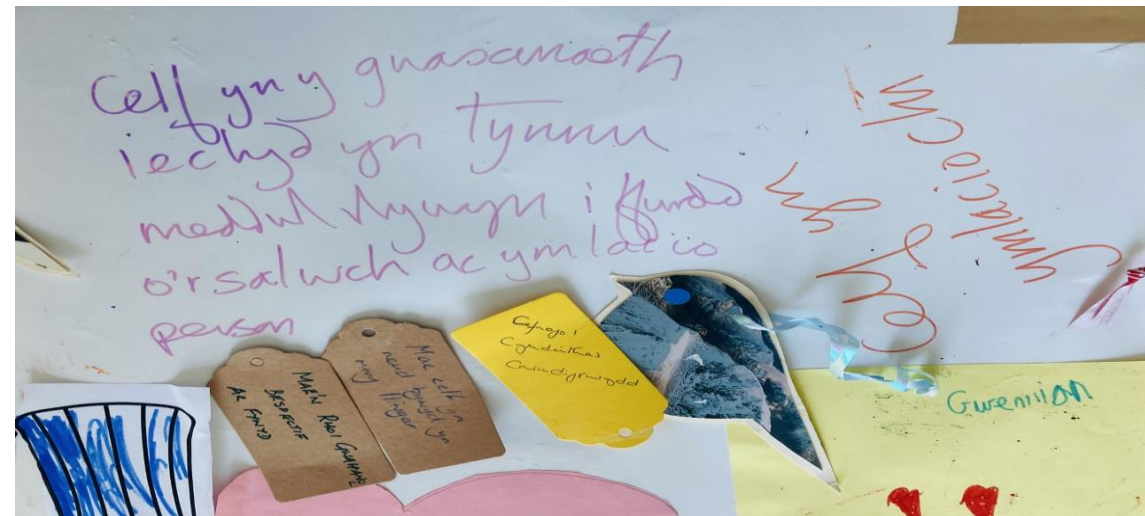 Celf yn y gwasanaeth
iechyd yn Tynnu
meddwl rhywyn i ffwrdd
o'r salwch ac ymlacio
person
yn
ymlaciochi
Mae celf yn
neud bywyd yn
mwy
MAE'N RHOI GWAHANOL
BESPECTIF
AR FYWYD
Cefnogi
Cymdeithas
Gwenllian